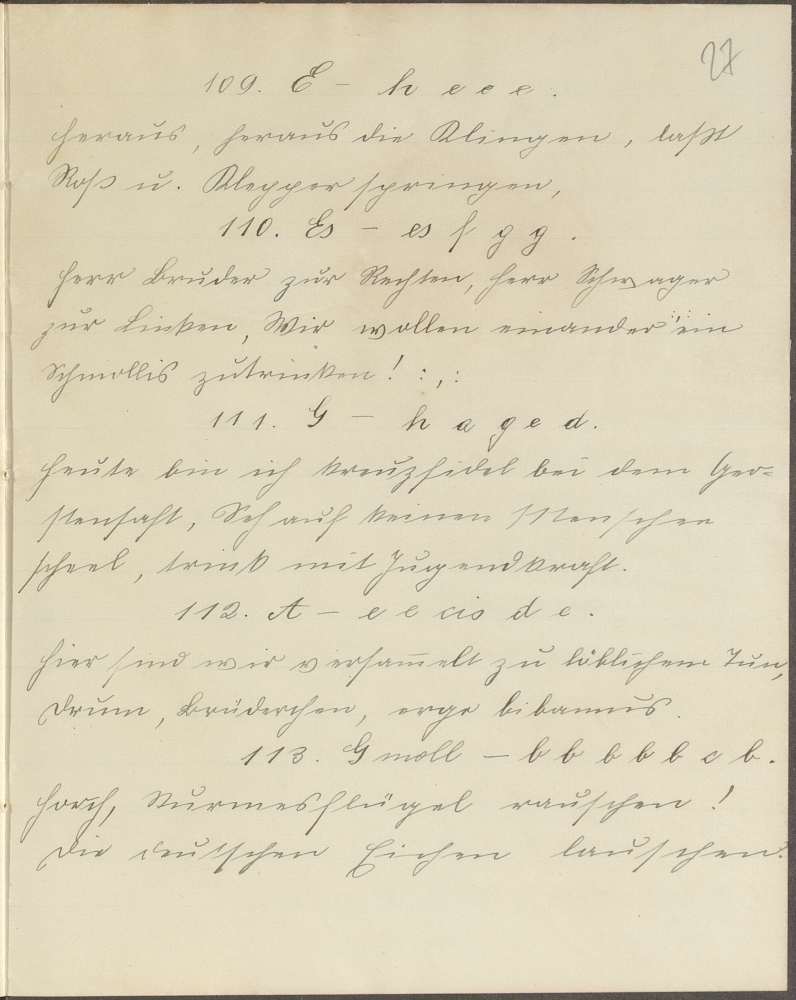 27
109. E – h e e e .
Heraus, heraus die Klingen, laßt
Roß u. Klepper springen,
110. Es – es f g g .
Herr Bruder zur Rechten, Herr Schwager
zur Linken, Wir wollen einander :,: ein
Schmollis zutrinken! :,:
111. G – h a g e d.
Heute bin ich kreuzfidel bei dem Ger=
stensaft, Seh auf keinen Menschen
scheel, trink mit Jugendkraft.
112. A – e e cis d e .
Hier sind wir versam̅elt zu löblichem Tun,
Drum, Brüderchen, ergo bibamus.
113. G moll – b b b b b c b.
Horch, Sturmesflügel rauschen!
Die deutschen Eichen lauschen.